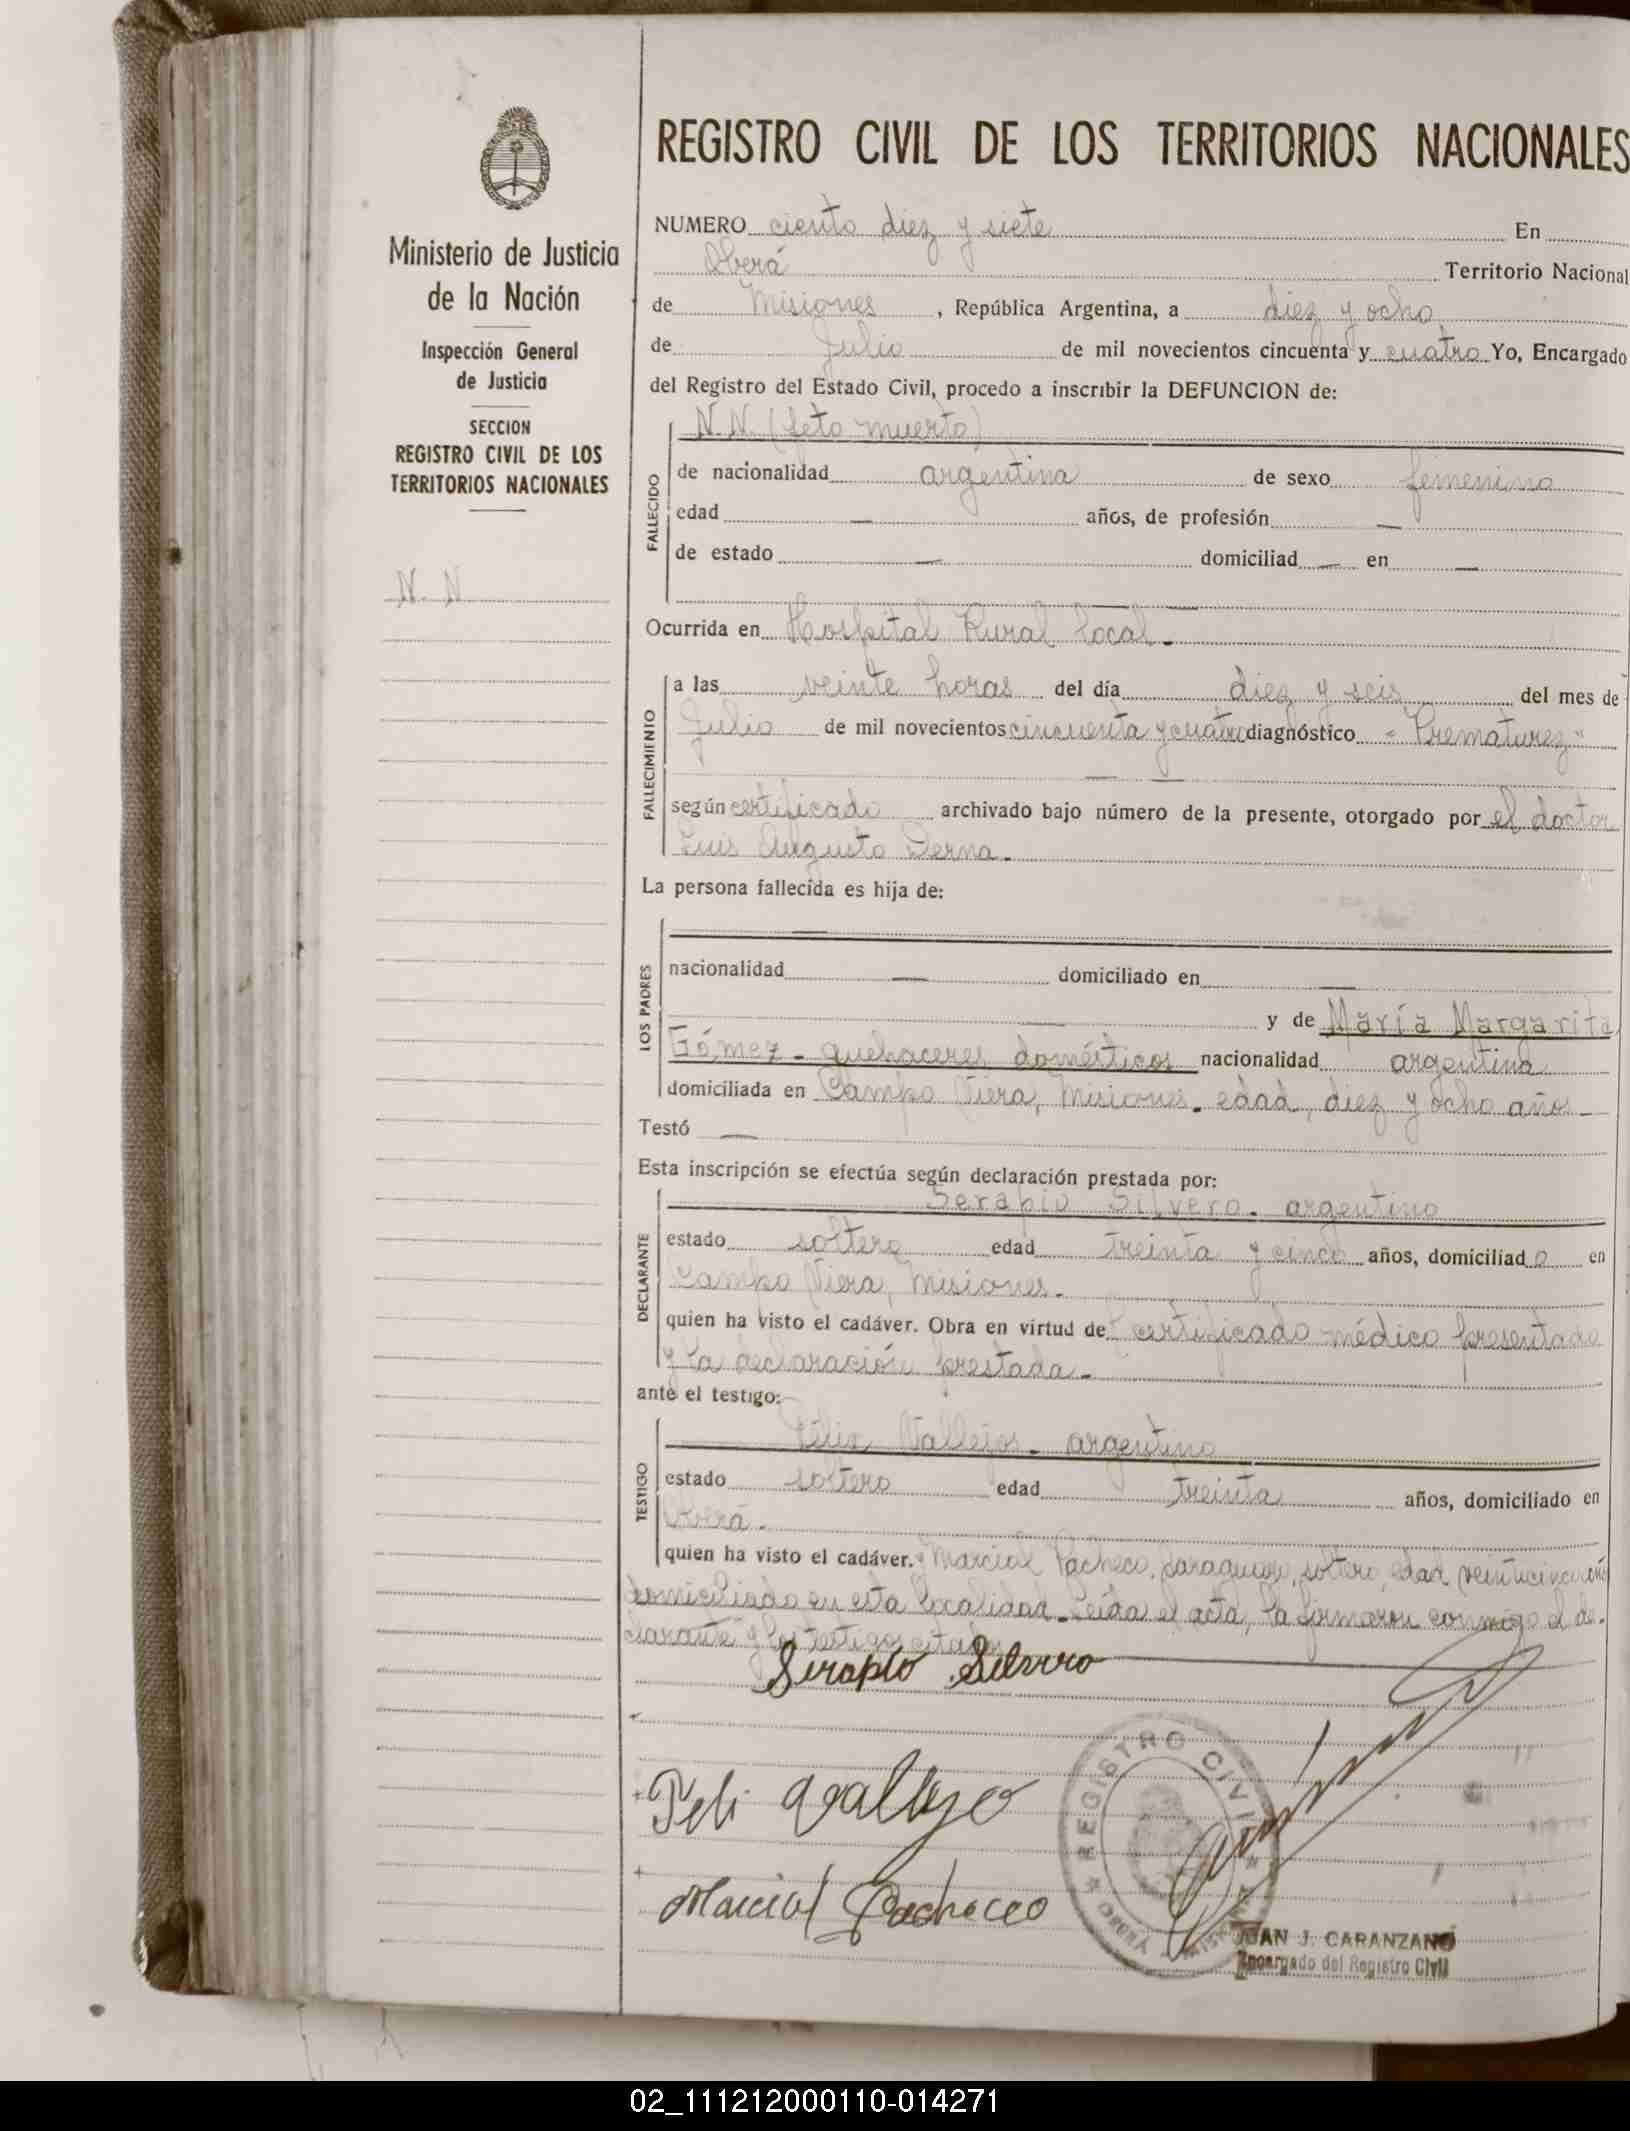 REGISTRO CIVIL DE LOS TERRITORIOS NACIONALES
Ministerio de Justicia
de la Nación
Inspección General
de Justicia
SECCION
REGISTRO CIVIL DE LOS
TERRITORIOS NACIONALES
N. N.
NUMERO ciento diez y siete En
Oberá Territorio Nacional
de Misiones, República Argentina, a diez y ocho
de Julio de mil novecientos cincuenta y cuatro Yo, Encargado
del Registro del Estado Civil, procedo a inscribir la DEFUNCION de:
FALLECIDO
N. N. (feto muerto)
de nacionalidad argentina de sexo femenino
edad — años, de profesión —
de estado — domiciliad — en —
Ocurrida en Hospital Rural Local.
FALLECIMIENTO
a las veinte horas del día diez y seis del mes de
Julio de mil novecientos cincuenta y cuatro diagnóstico "Prematurez"
según certificado archivado bajo número de la presente, otorgado por el doctor
Luis Augusto Derna.
La persona fallecida es hija de:
LOS PADRES
—
nacionalidad — domiciliado en —
y de María Margarita
Gómez - quehaceres domésticos nacionalidad argentina
domiciliada en Campo Viera, Misiones. edad, diez y ocho años -
Testó —
Esta inscripción se efectúa según declaración prestada por:
DECLARANTE
Serapio Silvero. argentino
estado soltero edad treinta y cinco años, domiciliado en
Campo Viera, Misiones.
quien ha visto el cadáver. Obra en virtud de certificado médico presentado
y la declaración prestada.-
ante el testigo:
TESTIGO
Félix Vallejos. argentino
estado soltero edad treinta años, domiciliado en
Oberá.
quien ha visto el cadáver. y Marcial Pacheco, paraguayo, soltero, edad veinticinco años
domiciliado en esta localidad. Leída el acta, la firmaron conmigo el de-
clarante y los testigos citados
Serapio Silvero
Feli Vallejo
Marcial Pacheceo
REGISTRO CIVIL
OBERÁ MISIONES
JUAN J. CARANZANO
Encargado del Registro Civil
02_111212000110-014271